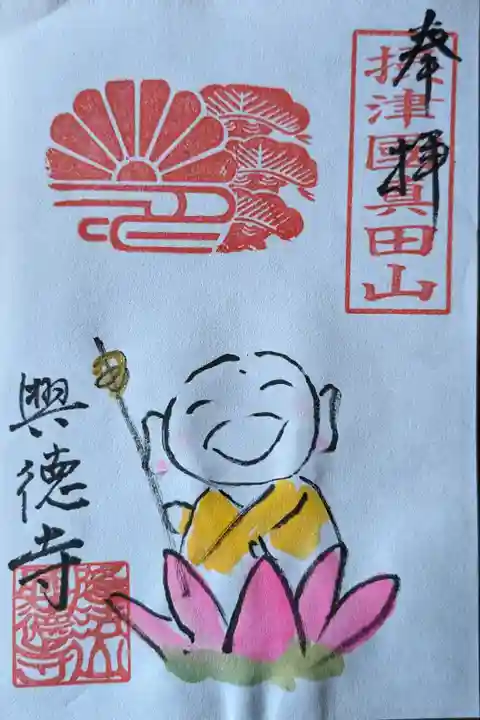 奉拝
摂津國真田山
興徳寺